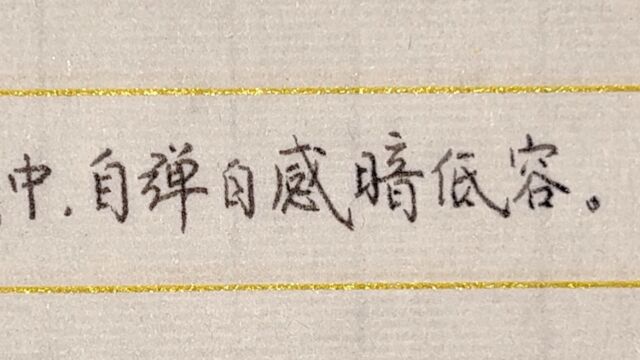 中，自弹自感暗低容。